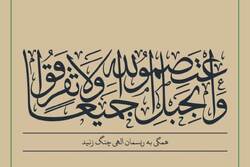 واعتصموا بحبل الله جميعا ولا تفرقوا
همگی به ریسمان الهی چنگ زنید